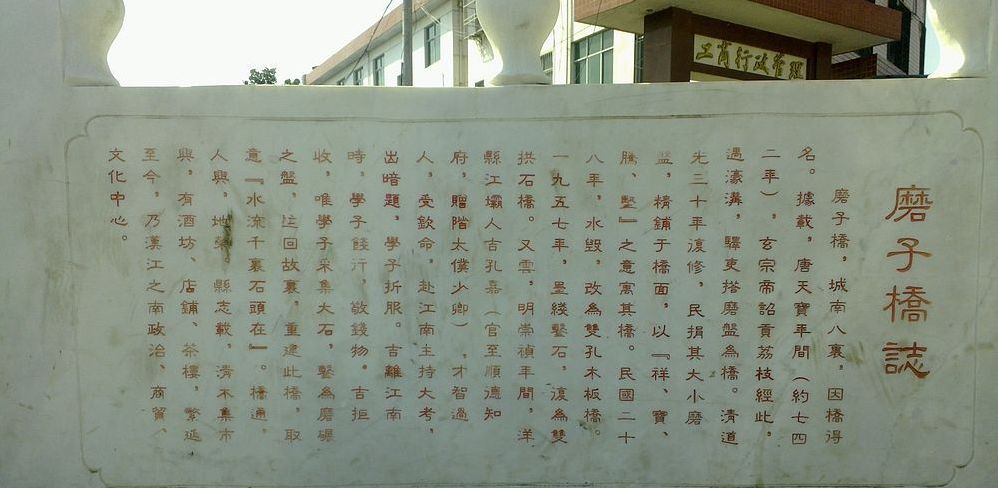 工商行政管理
磨子橋誌
磨子橋,城南八裏,因橋得
名。據載,唐天寶年間(約七四
二年),玄宗帝詔貢荔枝經此,
遇濠溝,驛吏搭磨盤為橋。清道
光三十年復修,民捐其大小磨
盤,精鋪于橋面,以『祥、寶、
騰、堅』之意寓其橋。民國二十
八年,水毀,改為雙孔木板橋。
一九五七年,墨綫鑿石,復為雙
拱石橋。又雲,明崇禎年間,洋
縣江壩人吉孔嘉(官至順德知
府,贈階太僕少卿),才智過
人,受欽命,赴江南主持大考,
出暗題,學子折服。吉離江南
時,學子餞行,敬錢物。吉拒
收,唯學子采集大石,鑿為磨碾
之盤,运回故裏,重建此橋,取
意『水流千裏石頭在』。橋通,
人興,地。縣志載,清末集市
興,有酒坊、店鋪、茶樓,繁延
至今,乃漢江之南政治、商貿、
文化中心。